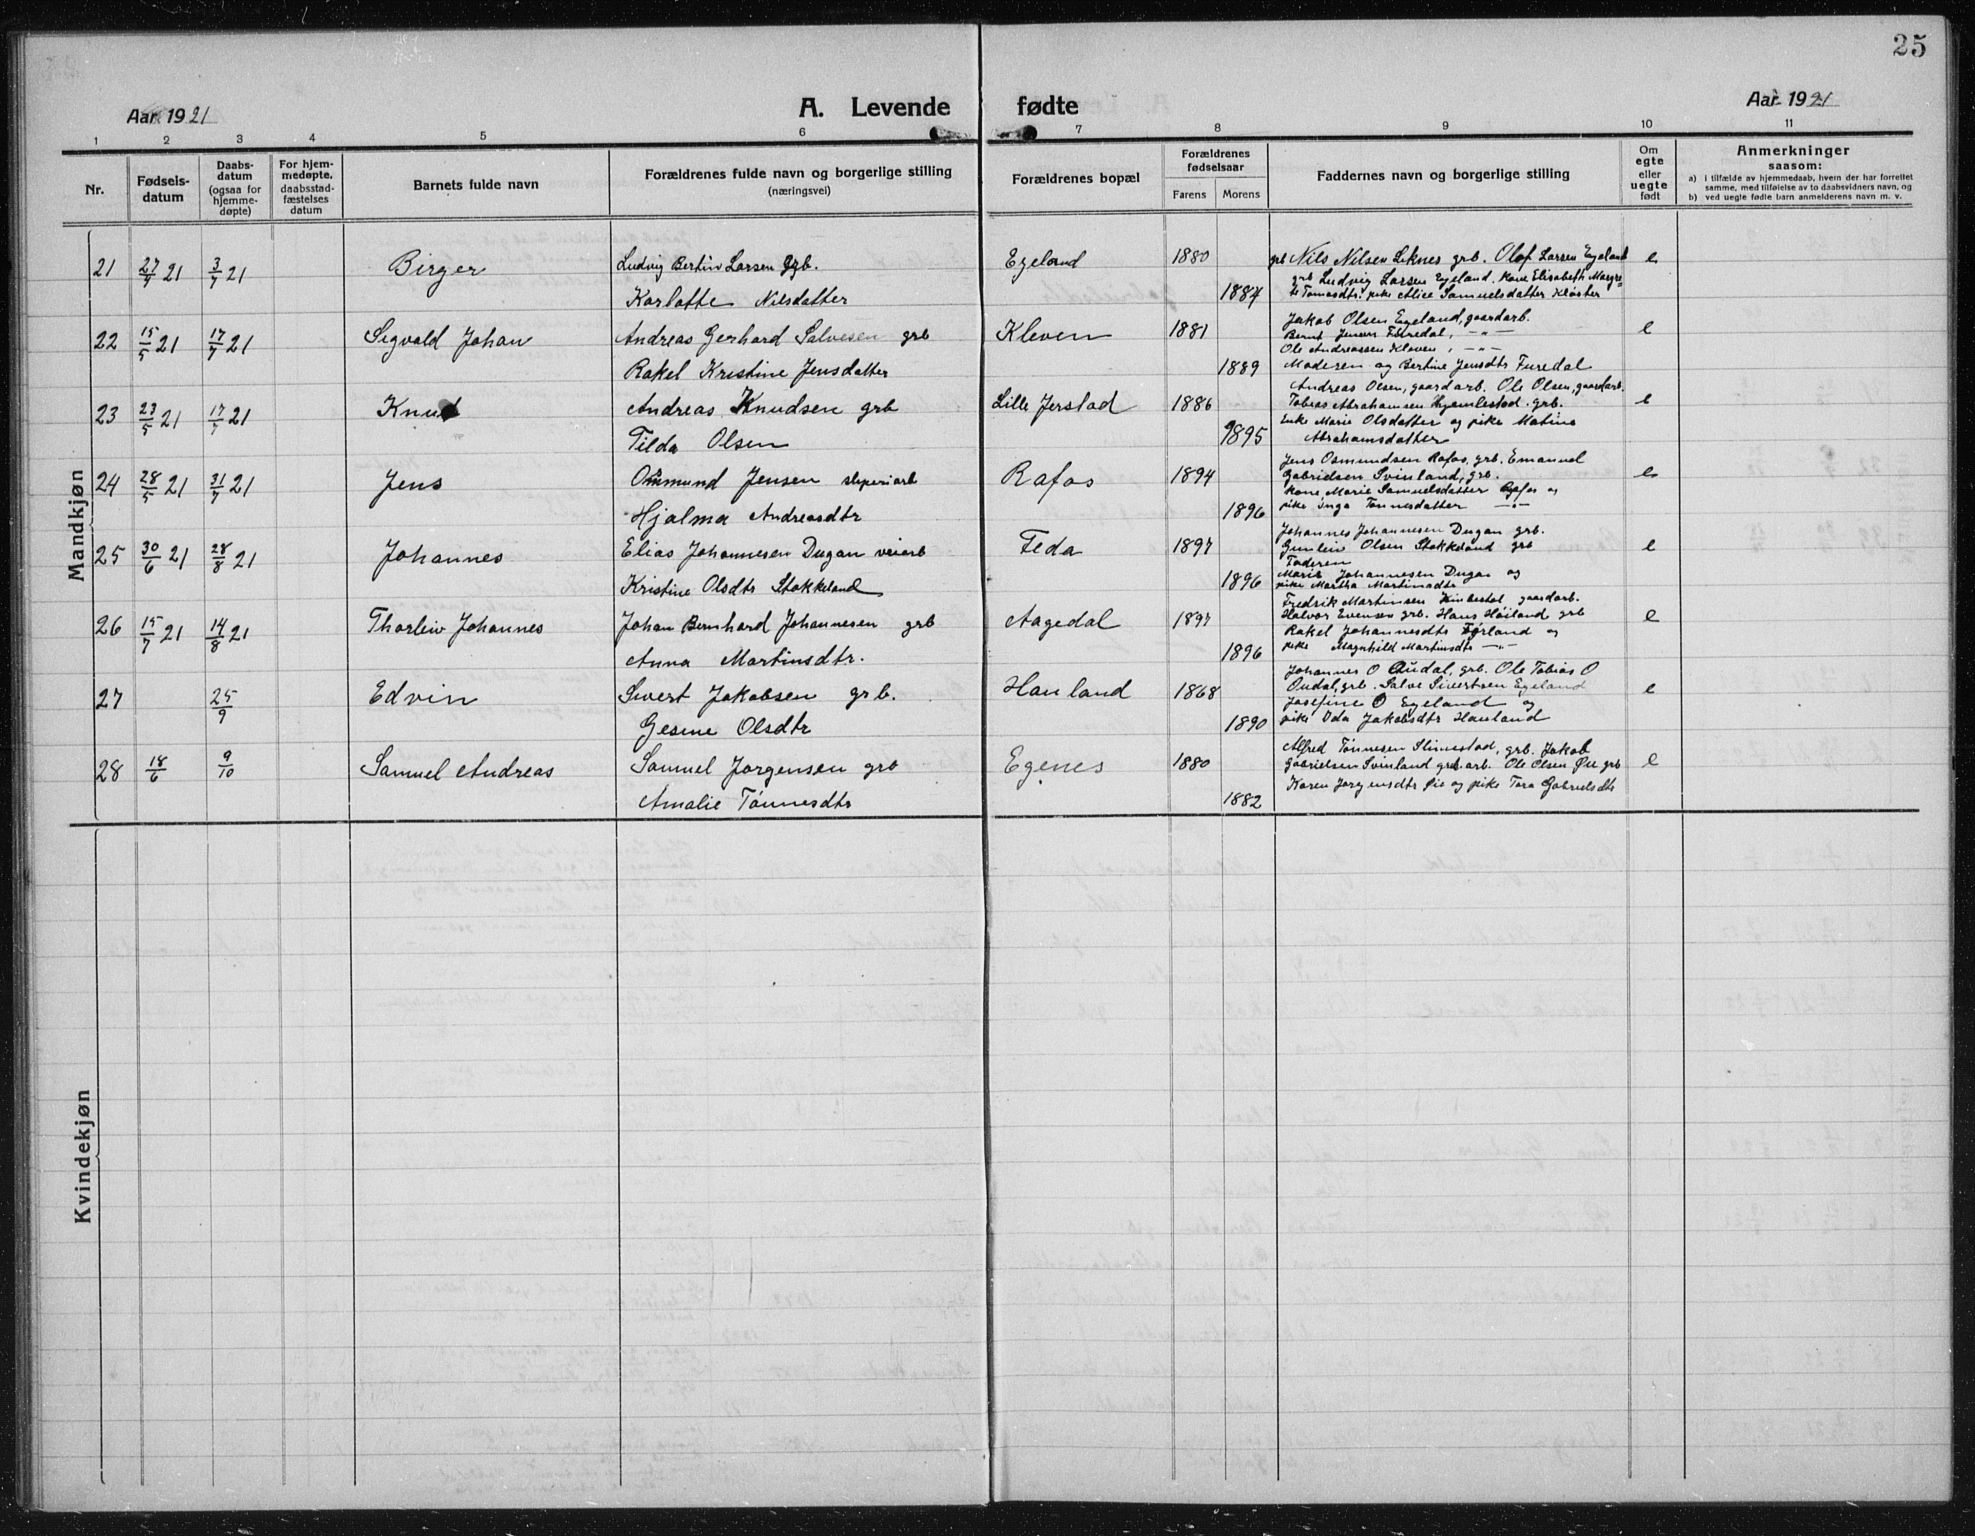 25
Aar 1921
A. Levende fødte
Aar 1921
1 2 3 4 5 6 7 8 9 10 11
Nr.
Fødsels-
datum
Daabs-
datum
(ogsaa for
hjemme-
døpte)
For hjem-
medøpte,
daabsstad-
fæstelses
datum
Barnets fulde navn
Forældrenes fulde navn og borgerlige stilling
(næringsvei)
Forældrenes bopæl
Forældrenes
fødselsaar
Farens Morens
Faddernes navn og borgerlige stilling
Om
egte
eller
uegte
født
Anmerkninger
saasom:
a) i tilfælde av hjemmedaab, hvem der har forrettet
samme, med tilføielse av to daabsvidners navn, og
b) ved uegte fødte barn anmelderens navn m. v.
Mandkjøn
21 27/4 21 3/7 21 Birger
Ludvig Bertin Larsen grb.
Karlotte Nilsdatter
Egeland 1880
1887
Nils Nilsen Liknes grb. Olaf Larsen Egeland
grb Ludvig Larsen Egeland. Kone Elisabeth Margre-
te Tomasdtr. pike Alice Samuelsdatter Kløster
e
22 15/5 21 17/7 21 Sigvald Johan
Andreas Gerhard Salvesen grb
Rakel Kristine Jensdatter
Kleven 1881
1889
Jakob Olsen Egeland, gaardarb.
Bernt Jensen Furedal, -"-
Ole Andreassen Kleven, -"-
Moderen og Bertine Jensdtr Furedal
e
23 23/5 21 17/7 21 Knud
Andreas Knudsen grb
Tilda Olsen
Lille Jerstad 1886
1895
Andreas Olsen, gaardarb. Ole Olsen, gaardarb.
Tobias Abrahamsen Hjemlestad. grb.
Enke Marie Olsdatter og pike Matine
Abrahamsdatter
e
24 28/5 21 31/7 21 Jens
Osmund Jensen sliperiarb
Hjalma Andreasdtr
Rafos 1894
1896
Jens Osmundsen Rafos, grb. Emanuel
Gabrielsen Svinland, grb.
Kone Marie Samuelsdatter Rafos og
pike Inga Tønnesdatter -"-
e
25 30/6 21 28/8 21 Johannes
Elias Johannesen Dugan veiarb
Kristine Olsdtr Stokkeland
Feda 1897
1896
Johannes Johannesen Dugan grb.
Gunlein Olsen Stokkeland grb
Faderen
Marie Johannesen Dugan og
pike Martha Martinsdtr
e
26 15/7 21 14/8 21 Thorleiv Johannes
Johan Bernhard Johannesen grb
Anna Martinsdtr.
Aagedal 1897
1896
Fredrik Martinsen gaardarb.
Halvor Evensen grb. Hans Høiland grb
Rakel Johannesdtr Førland og
pike Magnhild Martinsdtr -"-
e
27 25/9 Edvin
Sivert Jakobsen grb.
Gesine Olsdtr
Hauland 1868
1890
Johannes O Oudal, grb. Ole Tobias O
Oudal, grb. Salve Sivertsen Egeland
Josefine O Egeland og
pike Oda Jakobsdtr Hauland
e
28 18/6 9/10 Samuel Andreas
Samuel Jørgensen grb
Amalie Tønnesdtr
Egenes 1880
1882
Alfred Tønnesen Slimestad, grb. Jakob
Gabrielsen Svinland grdarb. Ole Olsen Øie grb
Karen Jørgensdtr Øie og pike Tora Gabrielsdtr
e
Kvindekjøn